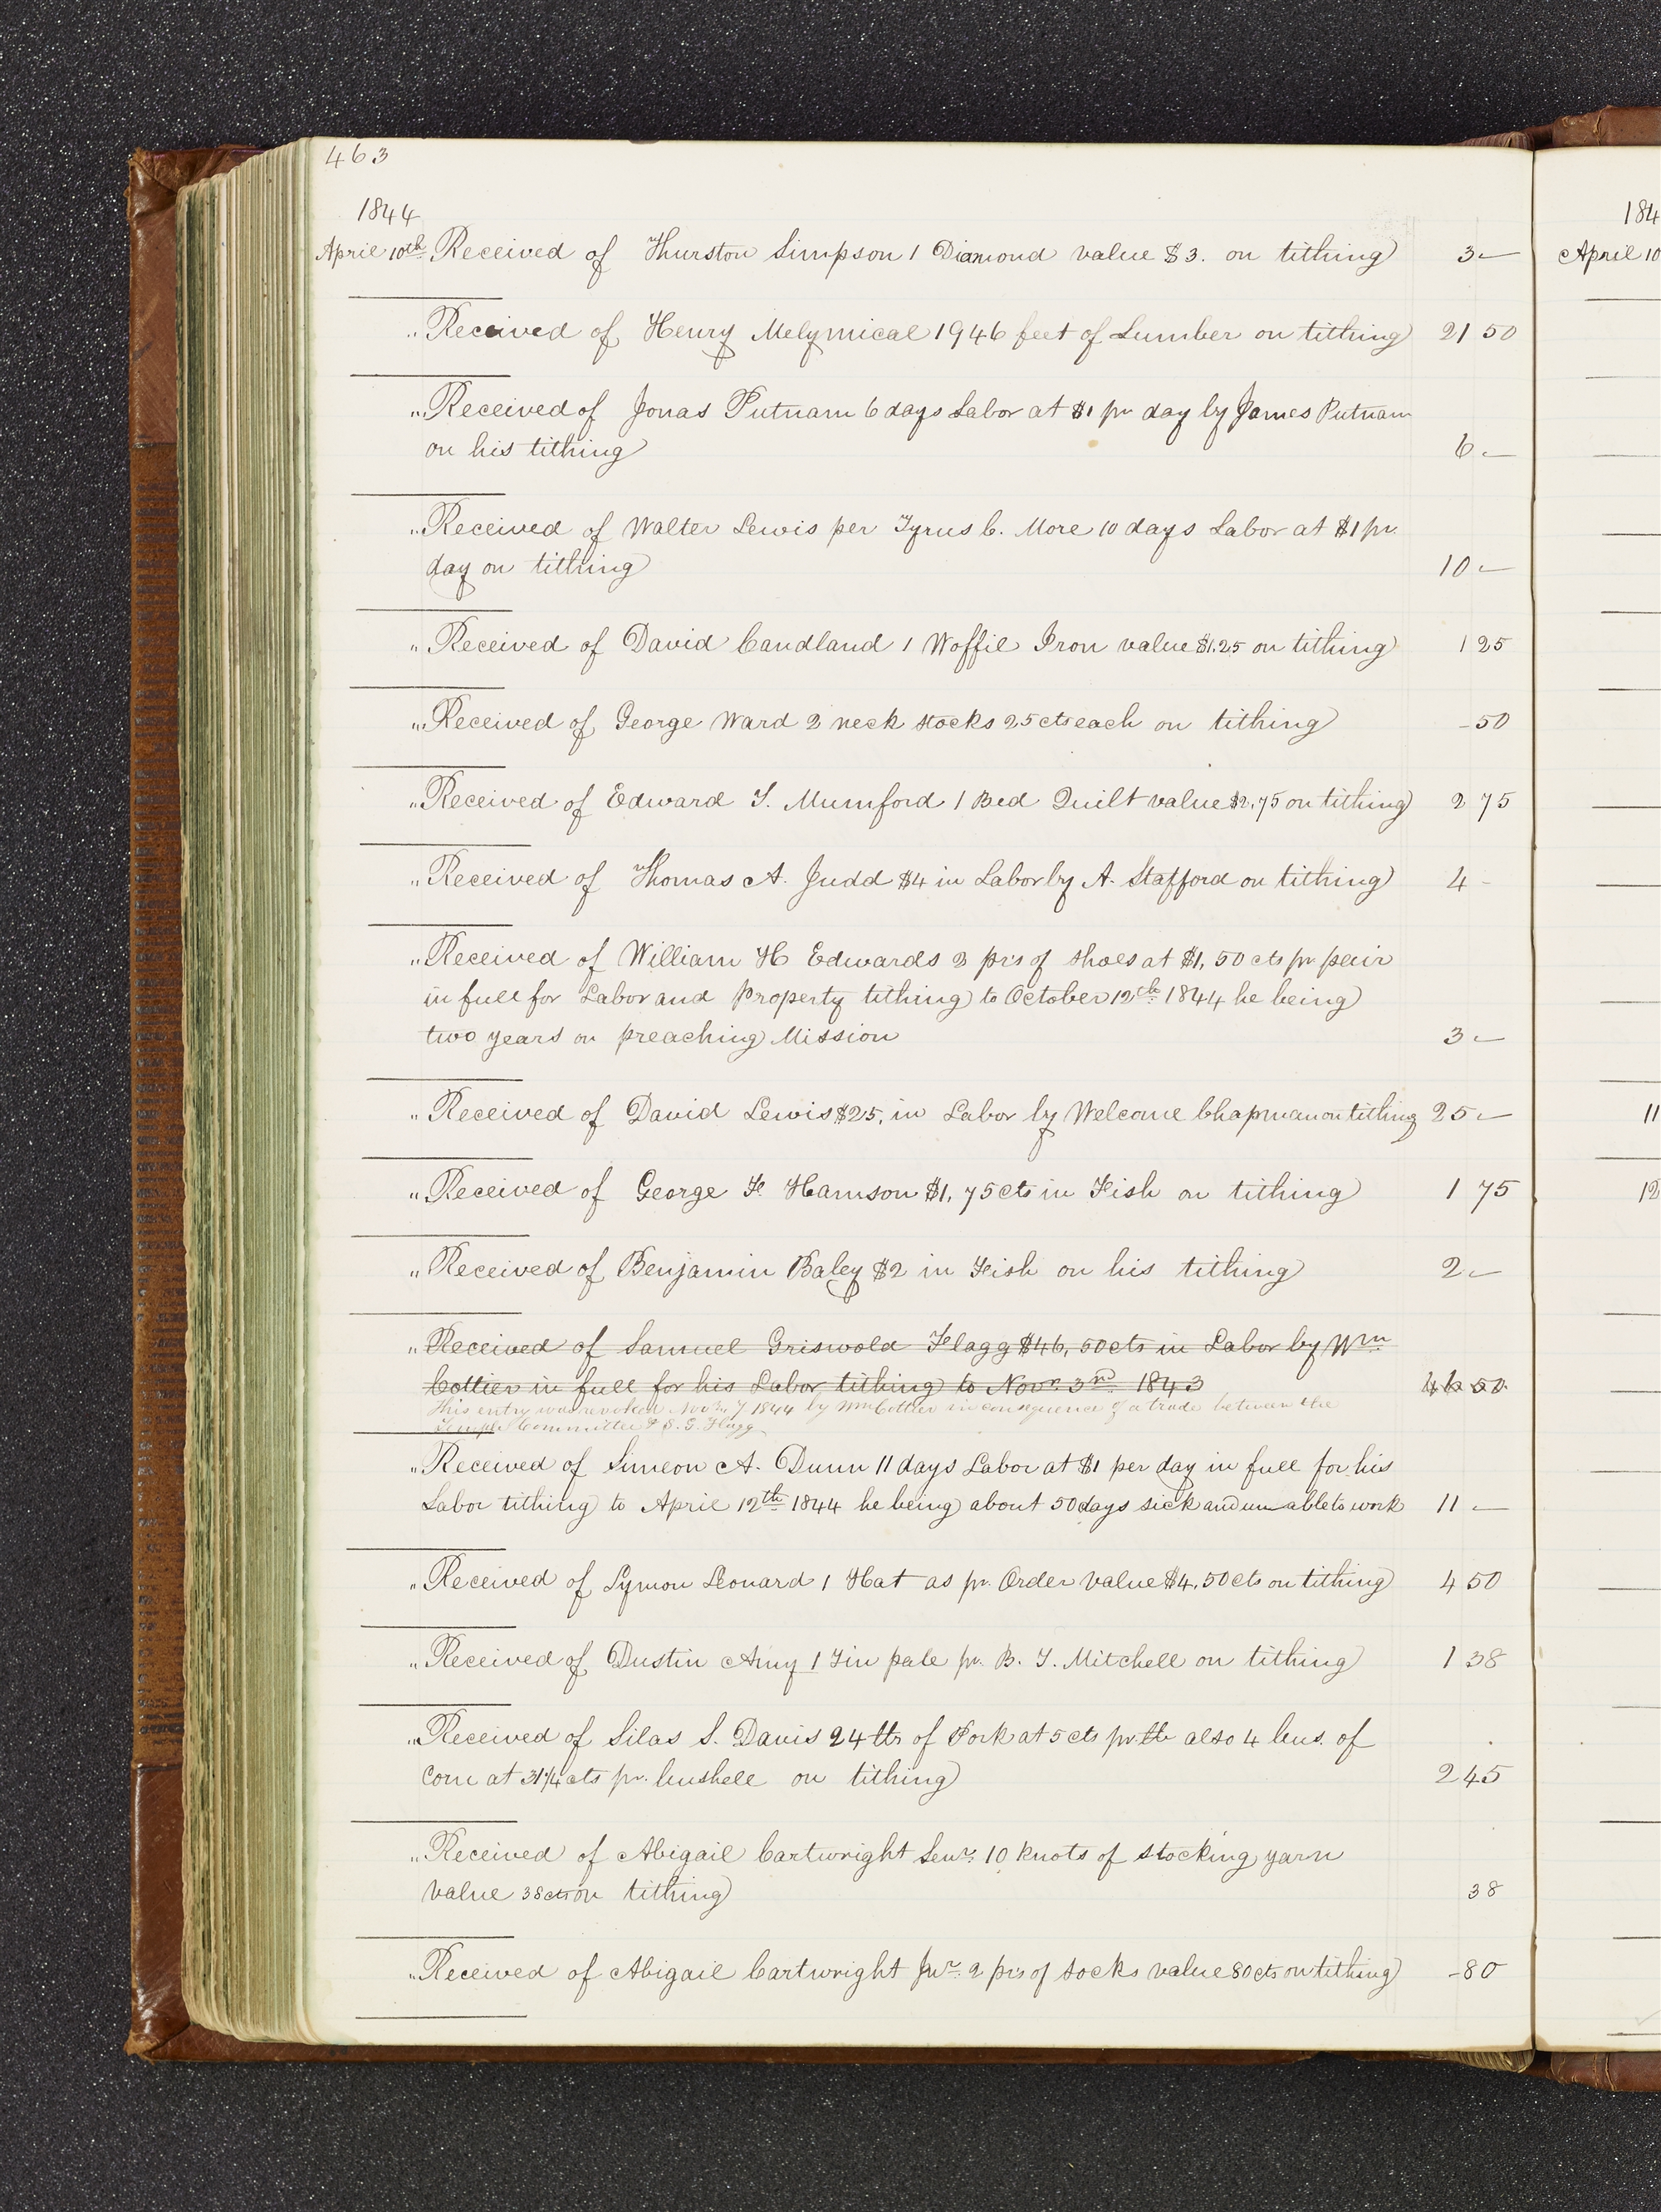 463
1844
184
April 10th Received of Thurston Simpson 1 Diamond value $3. on tithing 3 —
April 10
" Received of Henry Melymical 1946 feet of Lumber on tithing 21 50
" Received of Jonas Putnam 6 days Labor at $1 pr day by James Putnam
on his tithing 6 —
" Received of Walter Lewis per Tyrus C. More 10 days Labor at $1 pr.
day on tithing 10 —
" Received of David Candland 1 Woffil Iron value $1.25 on tithing 1 25
" Received of George Ward 2 neck stocks 25 cts each on tithing - 50
" Received of Edward T. Mumford 1 Bed Quilt value $2,75 on tithing 2 75
" Received of Thomas A. Judd $4 in Labor by A. Stafford on tithing 4 -
" Received of William H Edwards 2 prs of shoes at $1, 50 cts pr pair
in full for Labor and Property tithing to October 12th 1844 he being
two years on preaching Mission 3 —
" Received of David Lewis $25, in Labor by Welcome Chapman on tithing 25 —
11
" Received of George F. Harrison $1, 75 cts in Fish on tithing 1 75
12
" Received of Benjamin Baley $2 in Fish on his tithing 2 —
" Received of Samuel Griswold Flagg $46, 50 cts in Labor by Wm
Cottier in full for his Labor tithing to Novr. 3rd 1843 46 50
This entry was revoked Nov 7 1844 by Wm Cottier in consequence of a trade between the
Temple Committee & S. G. Flagg
" Received of Simeon A. Dunn 11 days Labor at $1 per day in full for his
Labor tithing to April 12th 1844 he being about 50 days sick and unable to work 11 —
" Received of Lymon Leonard 1 Hat as pr. Order value $4, 50 cts on tithing 4 50
" Received of Dustin Amy 1 Tin pale pr. B. T. Mitchell on tithing 1 38
" Received of Silas S. Davis 24 lbs of Pork at 5 cts pr. lb also 4 bus. of
Corn at 31 1/4 cts pr. bushell on tithing 2 45
" Received of Abigail Cartwright Senr. 10 Knots of stocking yarn
value 38 cts on tithing 38
" Received of Abigail Cartwright Jur. 2 prs of socks value 80 cts on tithing - 80